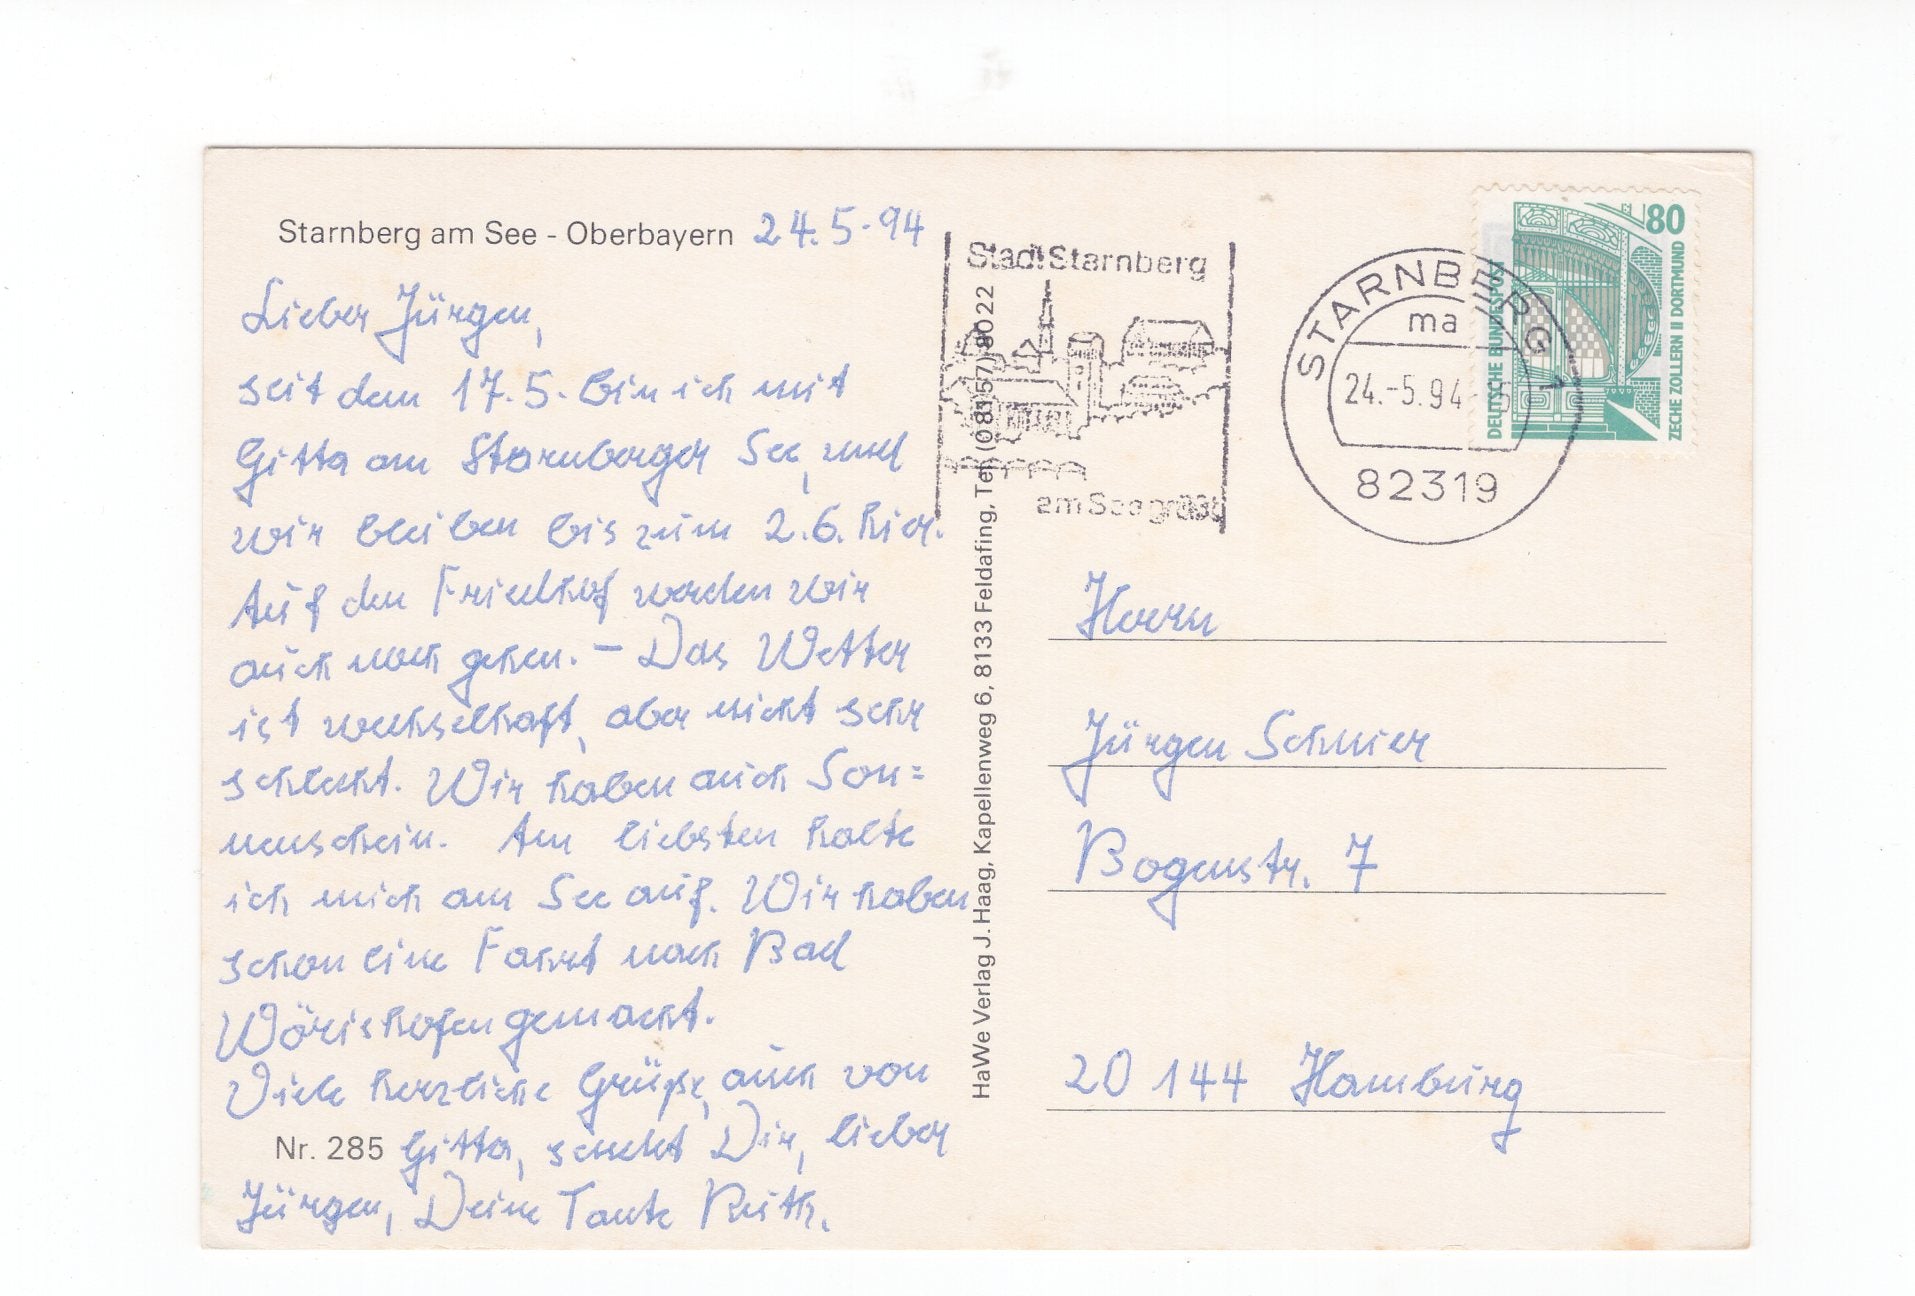 Starnberg am See - Oberbayern 24.5.94
Lieber Jürgen,
seit dem 17.5. bin ich mit
Gitta am Starnberger See, und
wir bleiben bis zum 2.6. hier.
Auf den Friedhof werden wir
auch noch gehen. – Das Wetter
ist wechselhaft, aber nicht sehr
schlecht. Wir haben auch Son=
nenschein. Am liebsten halte
ich mich am See auf. Wir haben
schon eine Fahrt nach Bad
Wörishofen gemacht.
Viele herzliche Grüße, auch von
Nr. 285 Gitta, sendet Dir, lieber
Jürgen, Deine Tante Ruth.
HaWe Verlag J. Haag, Kapellenweg 6, 8133 Feldafing, Tel. (08157) 8022
Stadt Starnberg
am See grüßt
STARNBERG 1
ma
24.-5.94-15
82319
80
DEUTSCHE BUNDESPOST
ZECHE ZOLLERN II DORTMUND
Herrn
Jürgen
Bogenstr. 7
20144 Hamburg